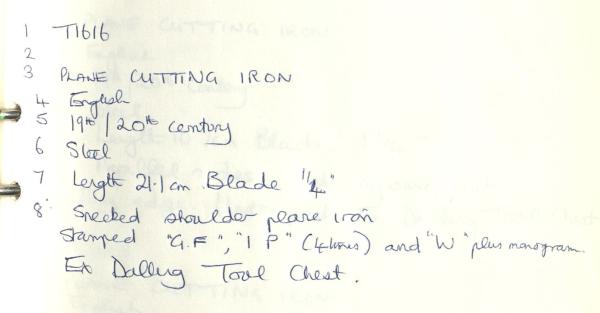 1 T1616
2
3 PLANE CUTTING IRON
4 English
5 19th / 20th century
6 Steel
7 Length 21.1 cm Blade 1/4"
8 shoulder plane iron
Stamped "G.F", "I P" (4 times) and "W" plus monogram.
Ex Dalling Tool Chest.